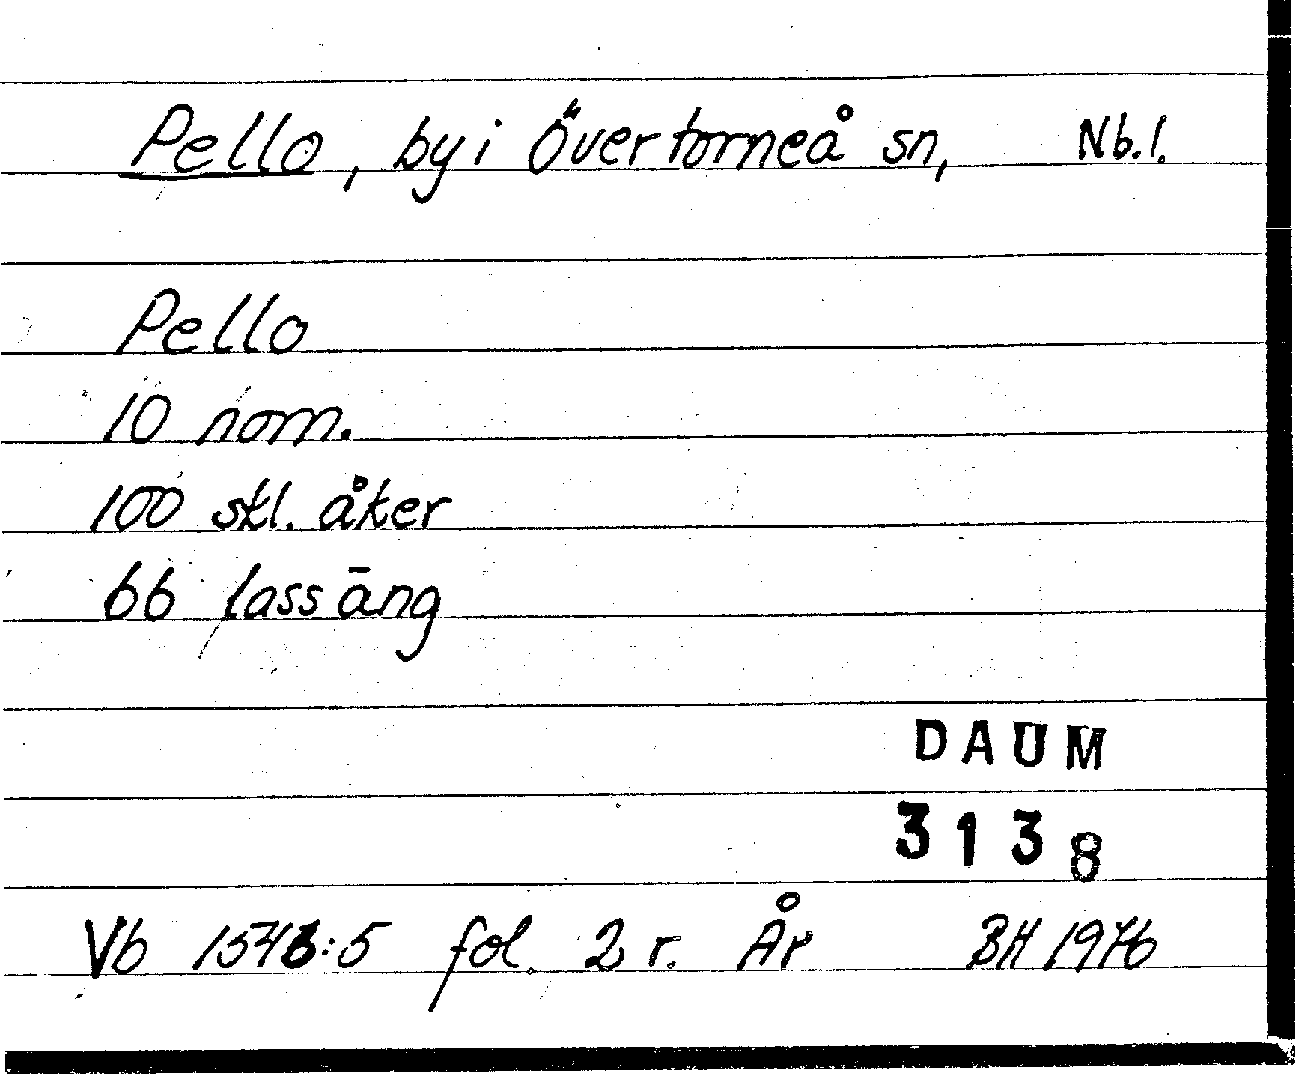 Pello, by i Övertorneå sn, Nb.l.
Pello
10 nom.
100 skl. åker
66 lass äng
DAUM
3138
Vb 1543:5 fol. 2 r. År BH 1976